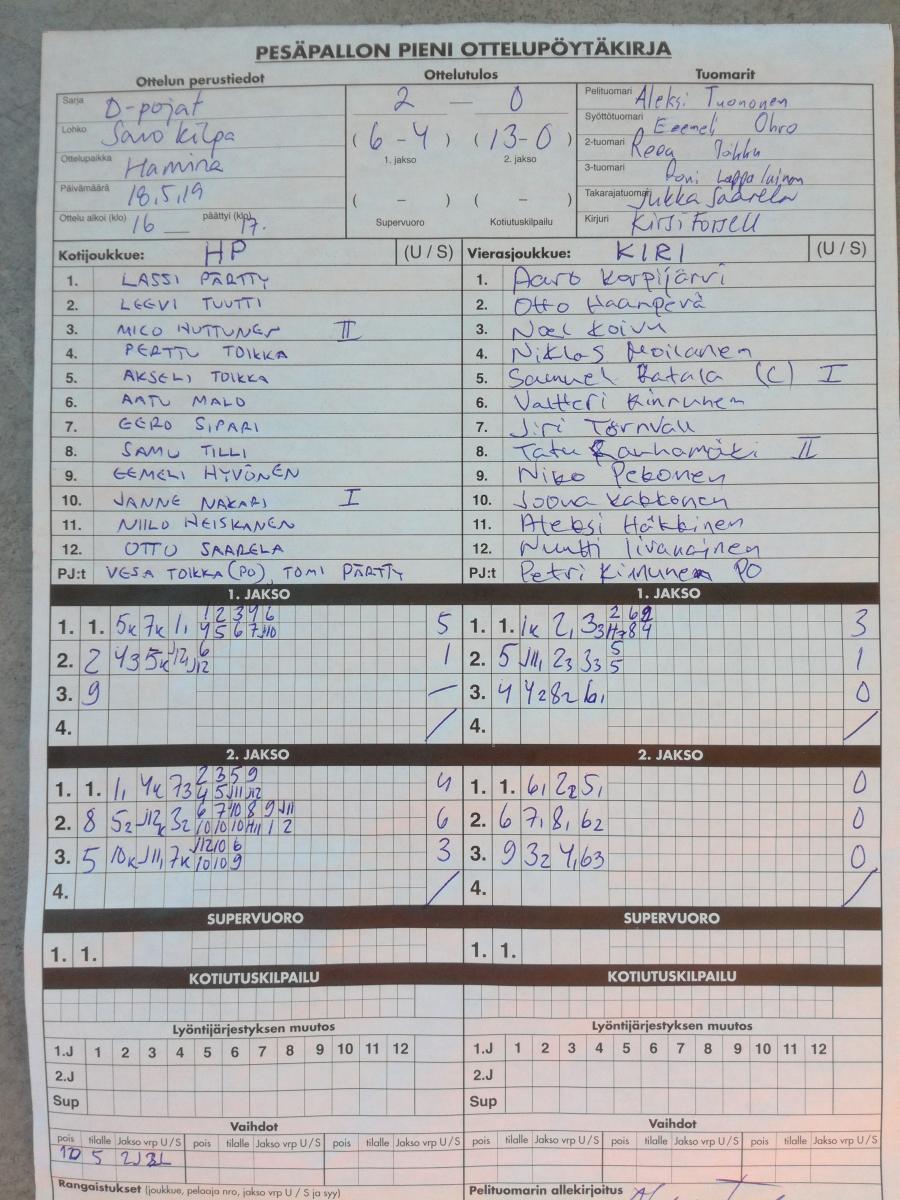 PESÄPALLON PIENI OTTELUPÖYTÄKIRJA
Ottelun perustiedot
Sarja D-pojat
Lohko Savo kilpa
Ottelupaikka Hamina
Päivämäärä 18.5.19
Ottelu alkoi (klo) 16 päättyi (klo) 17.
Ottelutulos
2 — 0
( 6 - 4 ) ( 13-0 )
1. jakso 2. jakso
( – ) ( – )
Supervuoro Kotiutuskilpailu
Tuomarit
Pelituomari Aleksi Tuononen
Syöttötuomari Eemeli Ohro
2-tuomari
3-tuomari Roni Lappalainen
Takarajatuomari Jukka Saarela
Kirjuri Kirsi Forsell
Kotijoukkue: HP (U / S)
1. LASSI PÄRTTY
2. LEEVI TUUTTI
3. MICO HUTTUNEN II
4. PERTTU TOIKKA
5. AKSELI TOIKKA
6. AATU MALO
7. EERO SIPARI
8. SAMU TILLI
9. EEMELI HYVÖNEN
10. JANNE NAKARI I
11. NIILO HEISKANEN
12. OTTO SAARELA
PJ:t VESA TOIKKA (PO), TOMI PÄRTTY
Vierasjoukkue: KIRI (U / S)
1. Aaro Korpijärvi
2. Otto Haanperä
3. Noel Koivu
4. Niklas Moilanen
5. Samuel Ratala (C) I
6. Valtteri Kinnunen
7. Jiri Törnvall
8. Tatu Rauhamäki II
9. Niko Pekonen
10. Joona Kakkonen
11. Aleksi Häkkinen
12. Nuutti Iivanainen
PJ:t Petri Kinnunen PO
1. JAKSO
1. 1. 5k 7k 1, 5
2. 2 1
3. 9 –
4. /
1. JAKSO
1. 1. 1k 3
2. 5 1
3. 4 0
4. /
2. JAKSO
1. 1. 4
2. 8 6
3. 5 3
4. /
2. JAKSO
1. 1. 6, 2₂ 5, 0
2. 6 7, 8, 6₂ 0
3. 9 0
4. /
SUPERVUORO
1. 1.
SUPERVUORO
1. 1.
KOTIUTUSKILPAILU
KOTIUTUSKILPAILU
Lyöntijärjestyksen muutos
1.J 1 2 3 4 5 6 7 8 9 10 11 12
2.J
Sup
Lyöntijärjestyksen muutos
1.J 1 2 3 4 5 6 7 8 9 10 11 12
2.J
Sup
Vaihdot
pois tilalle Jakso vrp U / S pois tilalle Jakso vrp U / S pois tilalle Jakso vrp U / S
Vaihdot
pois tilalle Jakso vrp U / S pois tilalle Jakso vrp U / S pois tilalle Jakso vrp U / S
Rangaistukset (joukkue, pelaaja nro, jakso vrp U / S ja syy)
Pelituomarin allekirjoitus